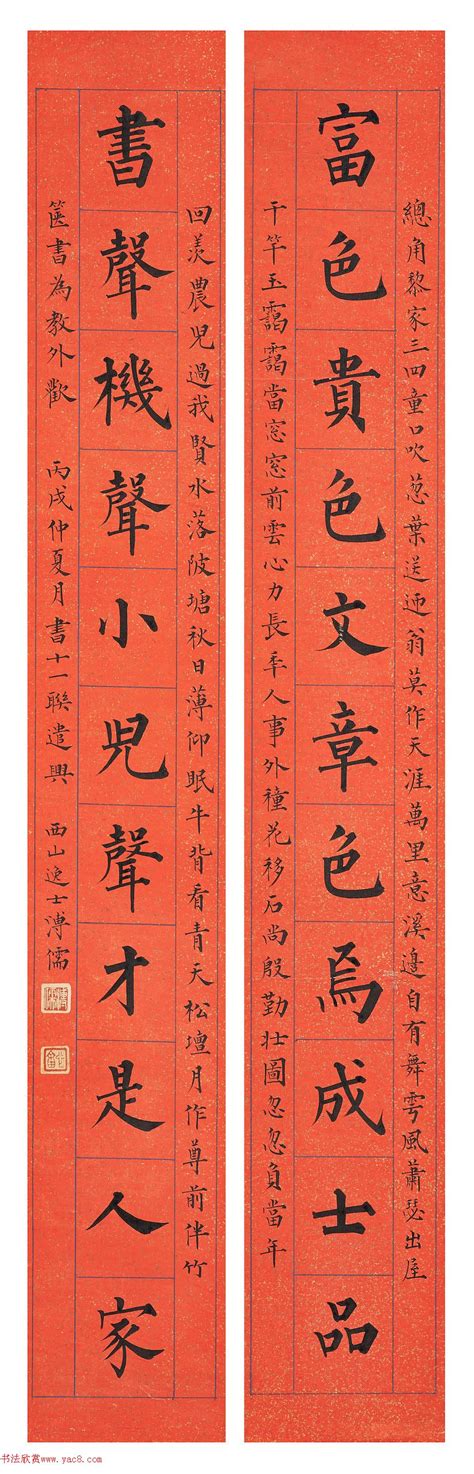 富色貴色文章色焉成士品
總角黎家三四童口吹蔥葉送迎翁莫作天涯萬里意溪邊自有舞雩風蕭瑟出屋
千竿玉靄靄當窓窓前雲心力長年人事外種花移石尚殷勤壯圖忽忽負當年
書聲機聲小兒聲才是人家
回羡農兒過我賢水落陂塘秋日薄仰眠牛背看青天松壇月作尊前伴竹
篋書為教外歡 丙戌仲夏月書十一聯遣興 西山逸士溥儒
书法欣赏www.yac8.com